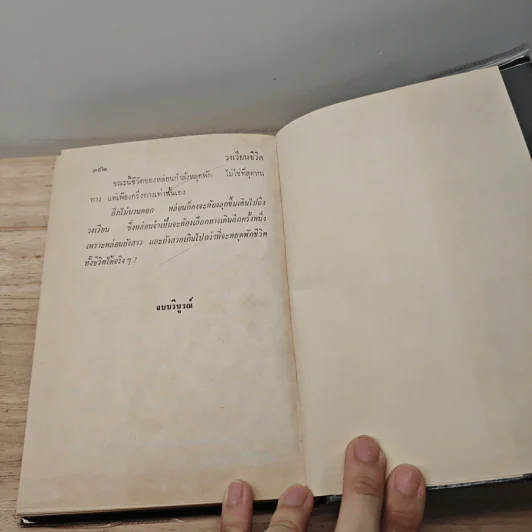 ๓๕๒
วงเวียนชีวิต
ขณะนี้ชีวิตของหล่อนกำลังหยุดพัก ไม่ใช่ที่สุดหน
ทาง แต่เพียงครึ่งทางเท่านั้นเอง
อีกไม่นานดอก หล่อนก็คงจะต้องลุกขึ้นเดินไปถึง
วงเวียน ซึ่งหล่อนจำเป็นจะต้องเลือกทางเดินอีกครั้งหนึ่ง
เพราะหล่อนยังสาว และยังสวยเกินไปกว่าที่จะหยุดพักชีวิต
ทั้งชีวิตได้จริง ๆ !
จบบริบูรณ์